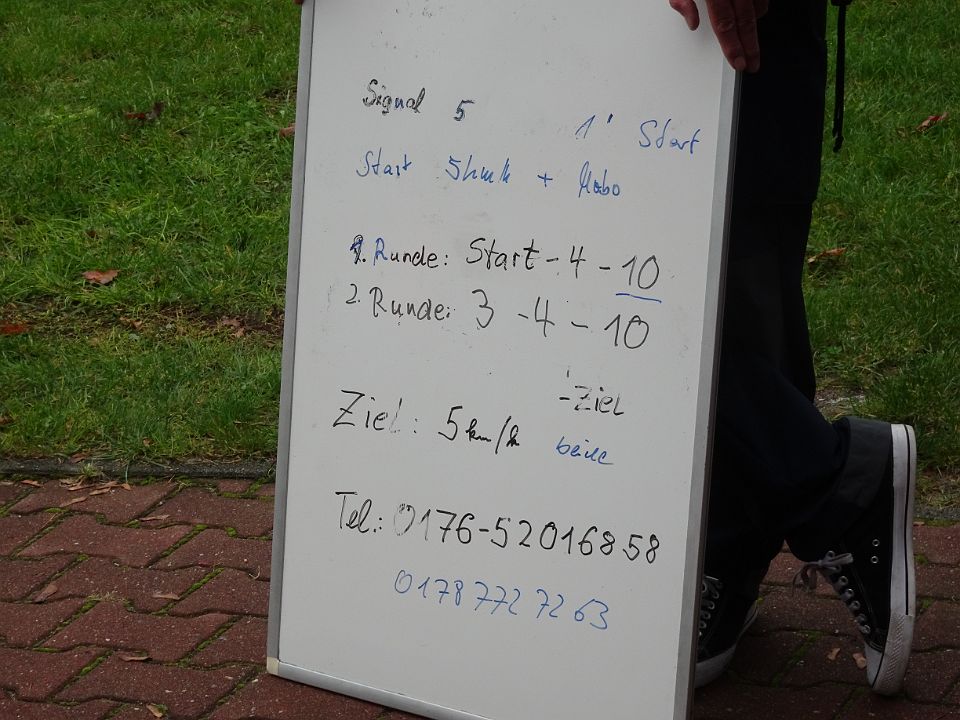 Signal 5
1' Start
Start 5km/h +
1. Runde: Start - 4 - 10
2. Runde: 3 - 4 - 10
- Ziel
Ziel: 5km/h beide
Tel.: 0176-52016858
0178 772 72 63